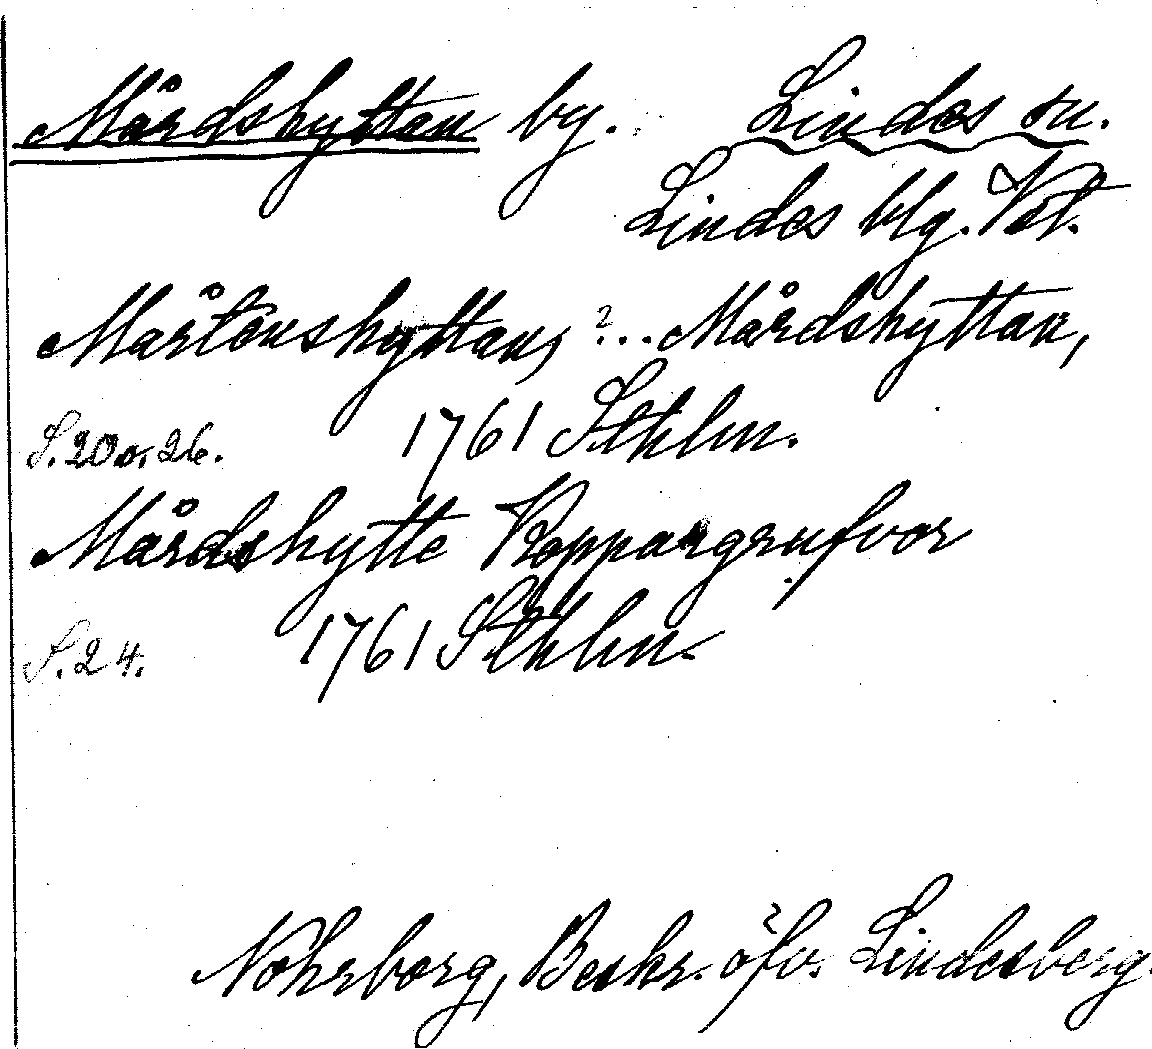 Mårdshyttan by. Lindes sn.
Lindes blg. Vstl.
Mårtenshyttan, ?... Mårdshyttan,
S. 20 o. 26. 1761 Sthlm.
Mårdshytte Koppargrufvor
S. 24. 1761 Sthlm.
Nohrborg, Beskr. öfv. Lindesberg.